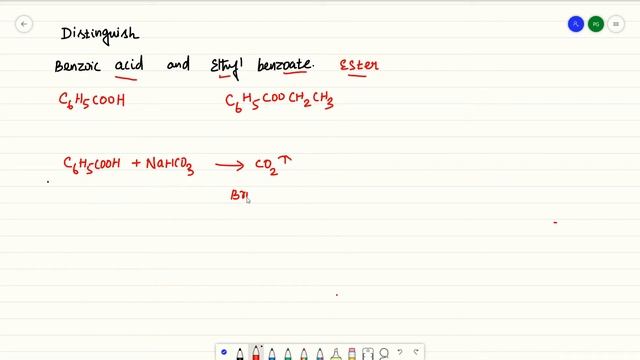 Distinguish
Benzoic acid and Ethyl benzoate. Ester
C6H5COOH C6H5COOCH2CH3
C6H5COOH + NaHCO3 → CO2↑
Bri
PG